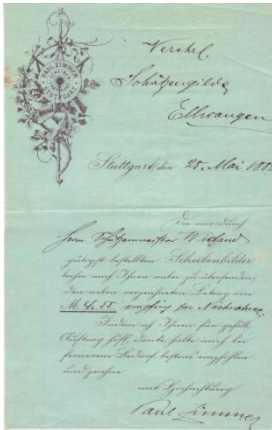 PAUL ZIMMER
STUTTGART
Verehrl.
Schützengilde
Ellwangen
Stuttgart, den 25. Mai 188
Die mir durch
Herrn Schützenmeister Wieland
gütigst bestellten Scheibenbilder
Ihnen
den Betrag von
M. 42. 55. empfing per Nachnahme.
Indem ich Ihnen für gefäll.
Auftrag höfl. danke, halte mich bei
fernerem Bedarf bestens empfohlen
und zeichne
mit Hochachtung
Paul Zimmer